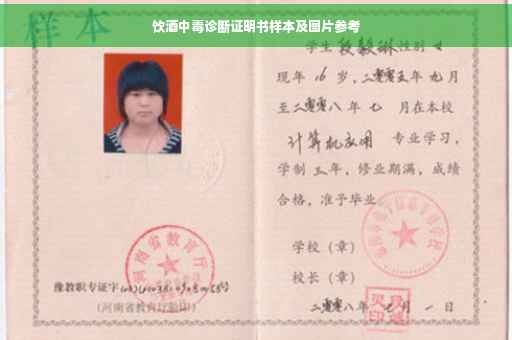 饮酒中毒诊断证明书样本及图片参考
样本
学生 段毅琳 性别 女
现年 16 岁，二零零五年 九 月
至二零零八年 七 月在本校
计算机应用 专业学习，
学制 三 年，修业期满，成绩
合格，准予毕业
学校（章）
校长（章）
二零零八年 月 一 日
河南省教育厅
豫教职专证字
（河南省教育厅验印）